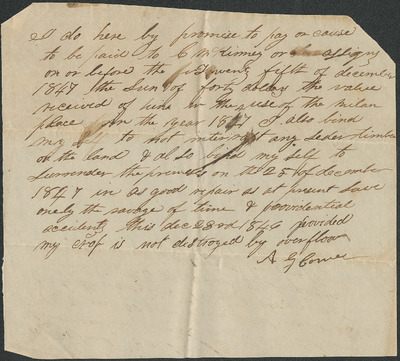 I do here by promise to pay or cause
to be paid to C McKinney or assigns
on or before the twenty fifth of december
1847 the sum of forty dolers the value
received of him in the use of the milan
place for the year 1847 I also bind
my self to not interrupt any seder timber
on the land & also bind my self to
surrender the premises on the 25 of december
1847 in as good repair as at present save
onely the savage of time & providential
accidents this dec 23rd 1846 provided
my crop is not distroyed by overflow
A G